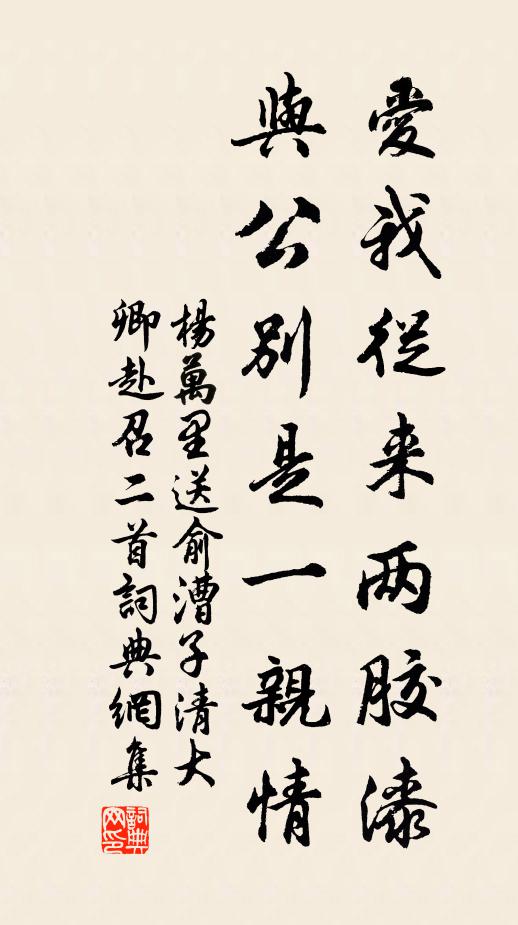 愛我従来两胶漆
與公別是一親情
楊萬里送俞漕子清大
卿赴召二首詞典網集
詞典网印